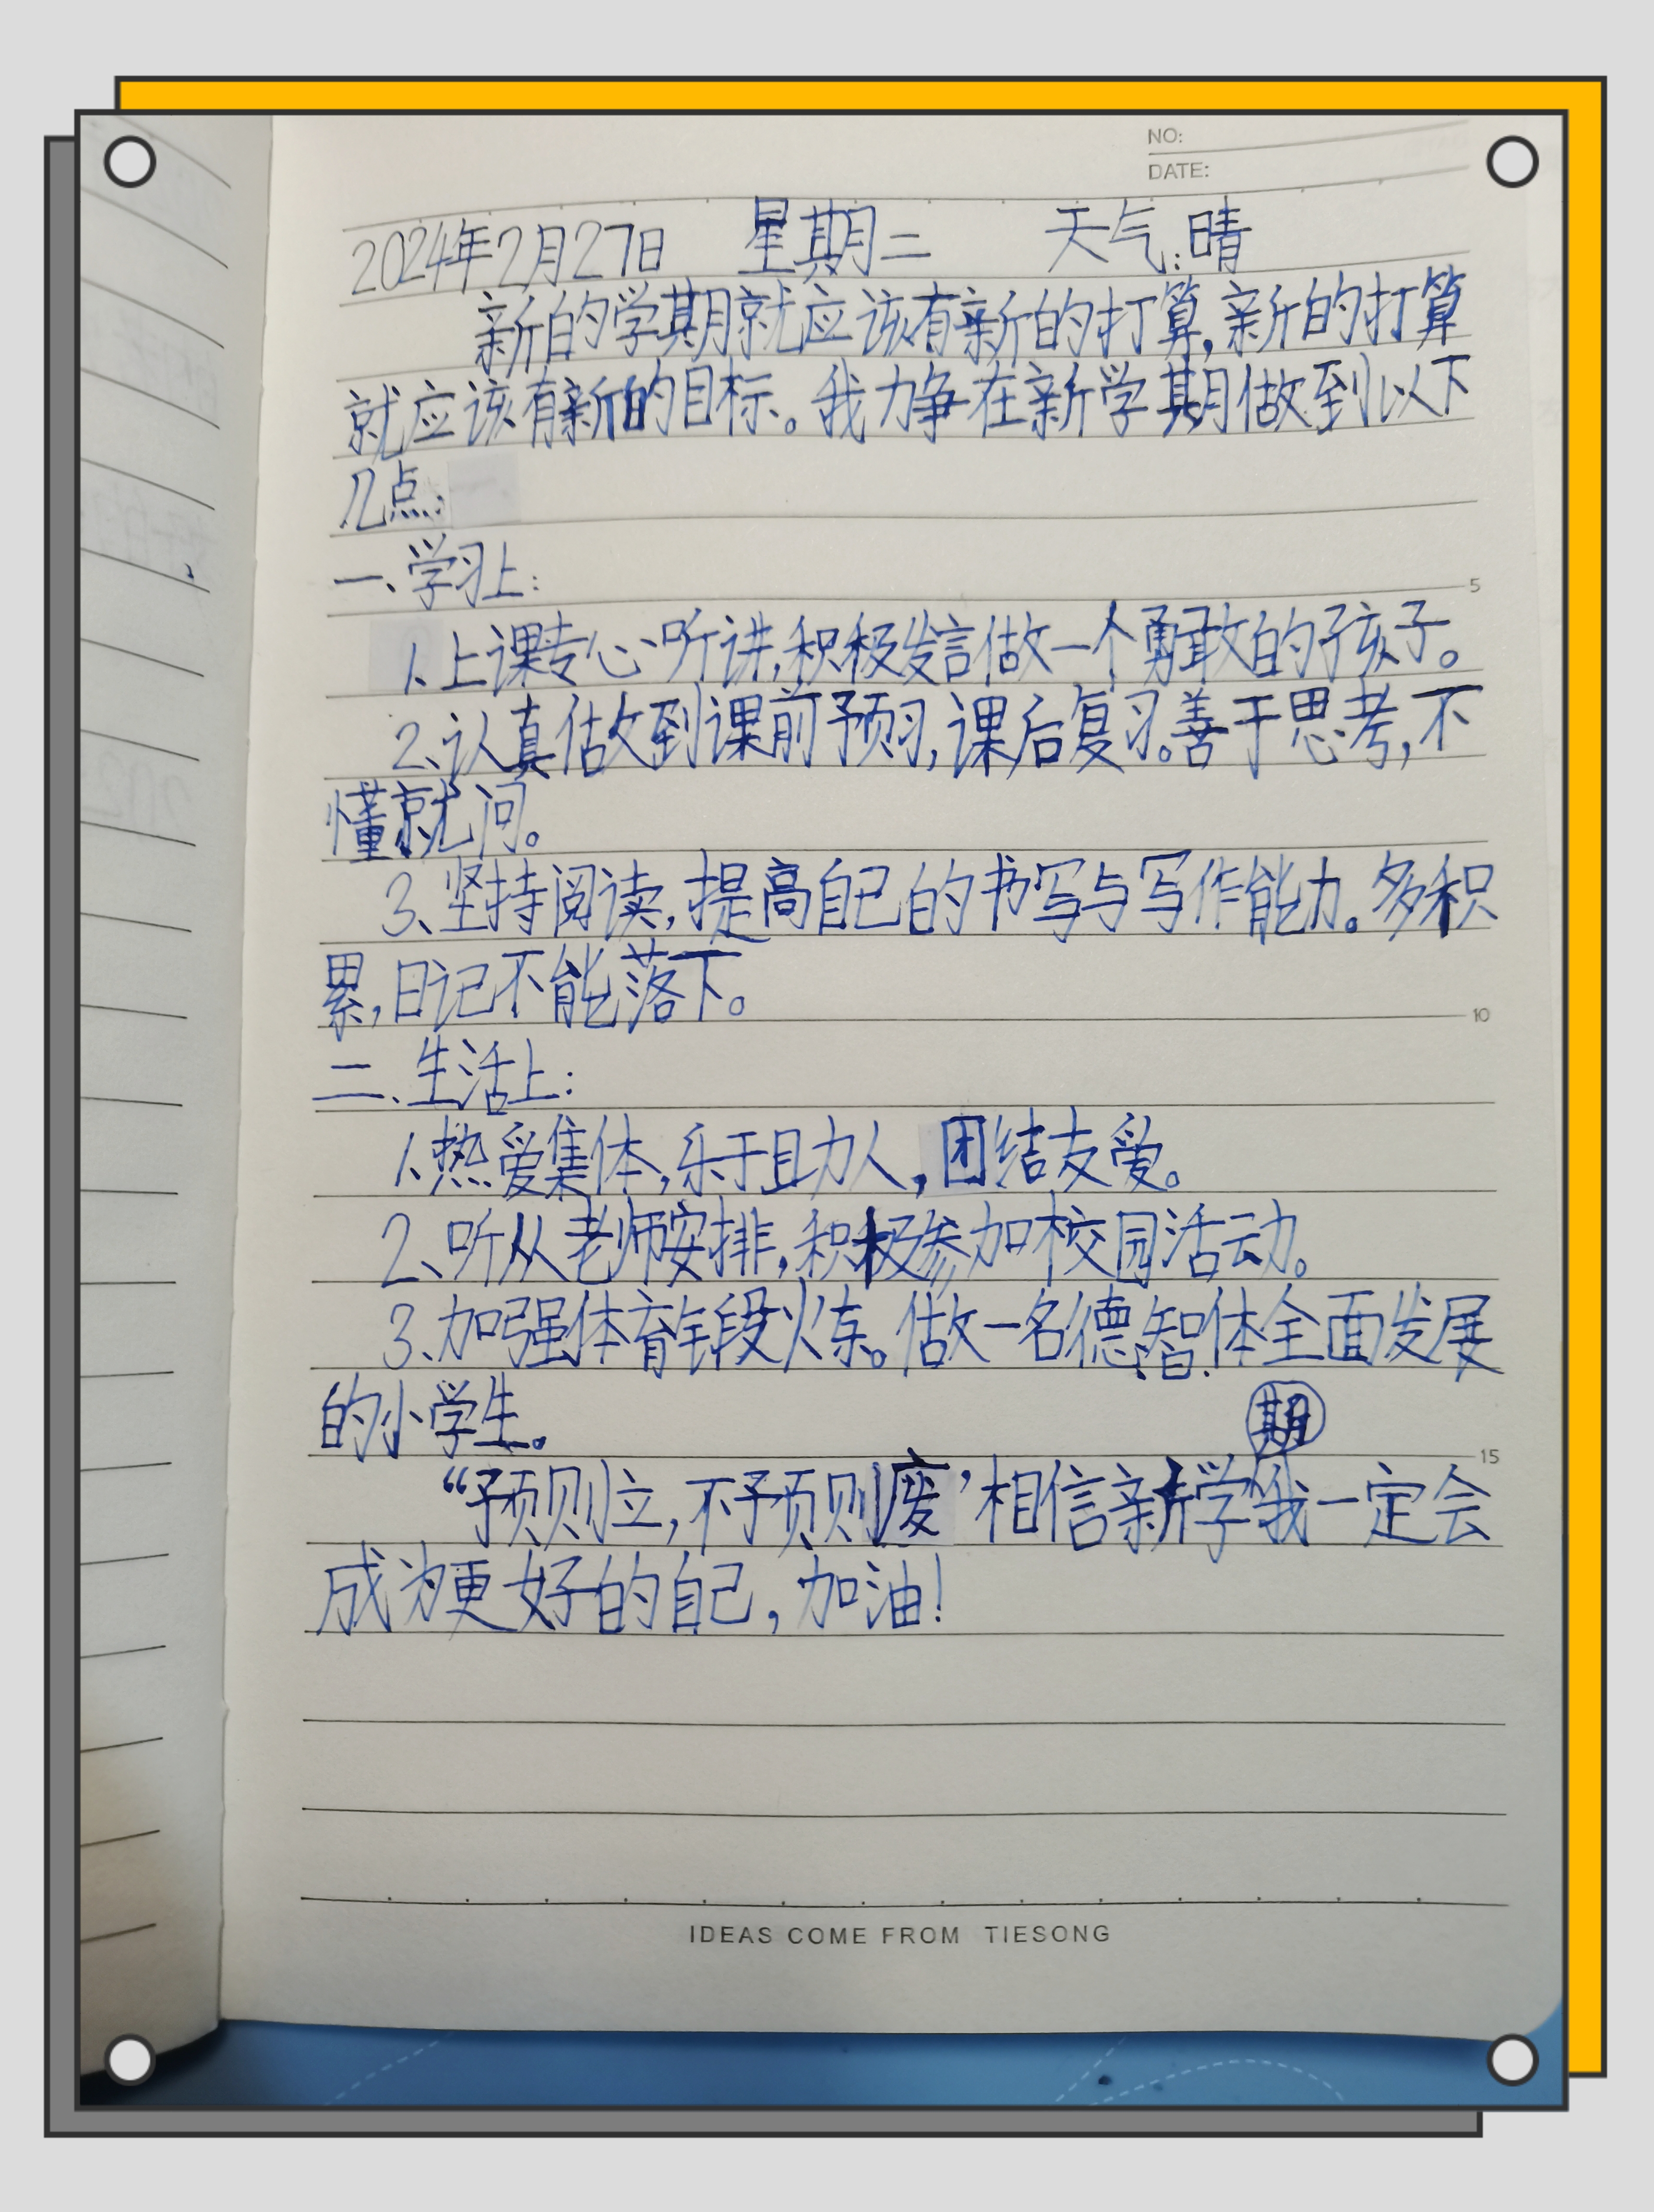 NO:
DATE:
2024年2月27日 星期二 天气:晴
新的学期就应该有新的打算,新的打算
就应该有新的目标。我力争在新学期做到以下
几点:
一、学习上:
1、上课专心听讲,积极发言做一个勇敢的孩子。
2、认真做到课前预习,课后复习。善于思考,不
懂就问。
3、坚持阅读,提高自己的书写与写作能力。多积
累,日记不能落下。
二、生活上:
1、热爱集体,乐于助人,团结友爱。
2、听从老师安排,积极参加校园活动。
3、加强体育锻炼。做一名德、智、体全面发展
的小学生。
“预则立,不预则废’相信新学期我一定会
成为更好的自己,加油!
5
10
15
IDEAS COME FROM TIESONG